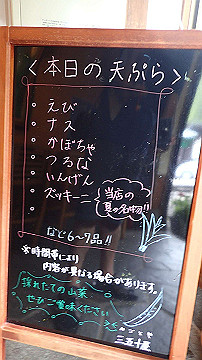 ＜本日の天ぷら＞
・えび
・ナス
・かぼちゃ
・つるな
・いんげん
・ズッキーニ
当店の
夏の名物!!
など6〜7品!!
※時間帯により
内容が異なる場合があります。
採れたての山菜
ぜひご賞味ください